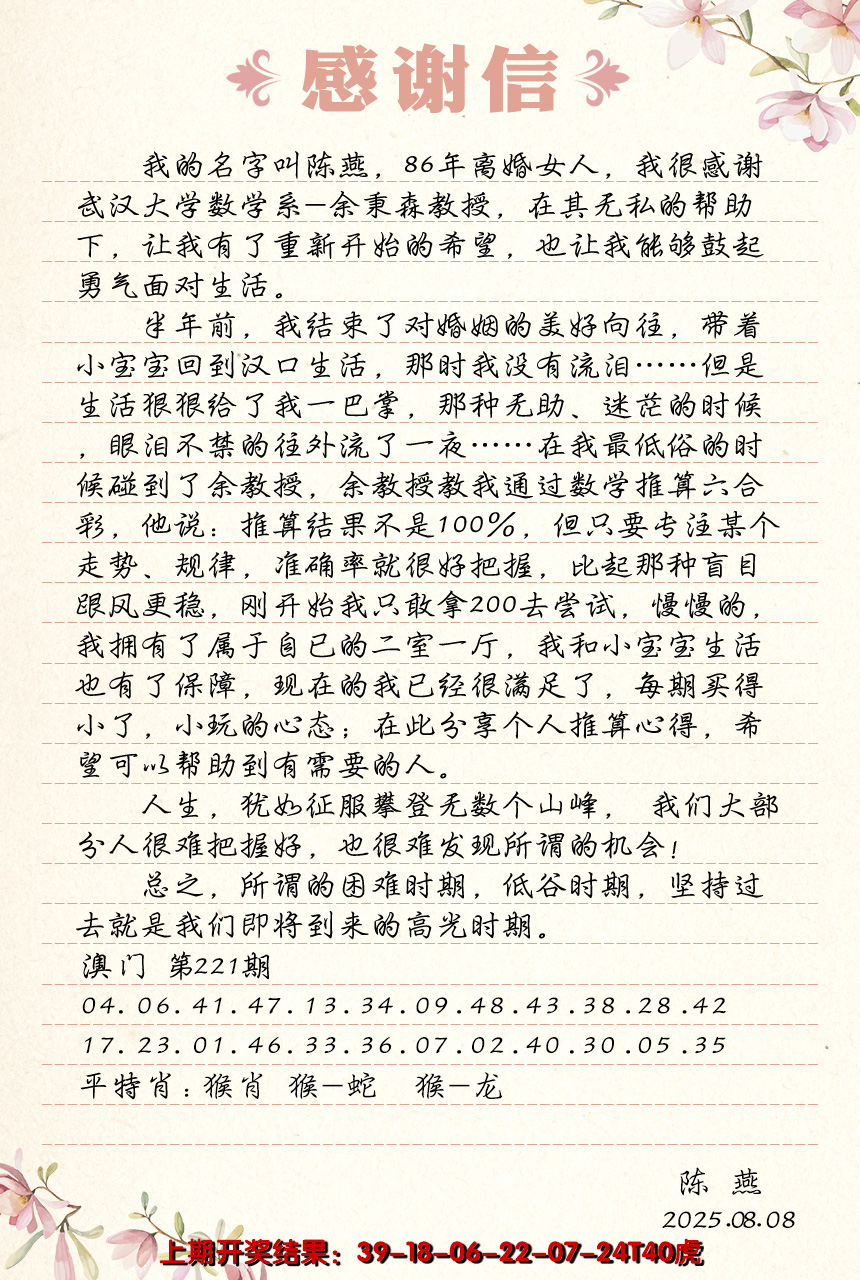 感谢信
我的名字叫陈燕，86年离婚女人，我很感谢
武汉大学数学系—余秉森教授，在其无私的帮助
下，让我有了重新开始的希望，也让我能够鼓起
勇气面对生活。
半年前，我结束了对婚姻的美好向往，带着
小宝宝回到汉口生活，那时我没有流泪……但是
生活狠狠给了我一巴掌，那种无助、迷茫的时候
，眼泪不禁的往外流了一夜……在我最低俗的时
候碰到了余教授，余教授教我通过数学推算六合
彩，他说：推算结果不是100%，但只要专注某个
走势、规律，准确率就很好把握，比起那种盲目
跟风更稳，刚开始我只敢拿200去尝试，慢慢的，
我拥有了属于自已的二室一厅，我和小宝宝生活
也有了保障，现在的我已经很满足了，每期买得
小了，小玩的心态；在此分享个人推算心得，希
望可以帮助到有需要的人。
人生，犹如征服攀登无数个山峰， 我们大部
分人很难把握好，也很难发现所谓的机会！
总之，所谓的困难时期，低谷时期，坚持过
去就是我们即将到来的高光时期。
澳门 第221期
04.06.41.47.13.34.09.48.43.38.28.42
17.23.01.46.33.36.07.02.40.30.05.35
平特肖：猴肖 猴—蛇 猴—龙
陈 燕
2025.08.08
上期开奖结果：39-18-06-22-07-24T40虎